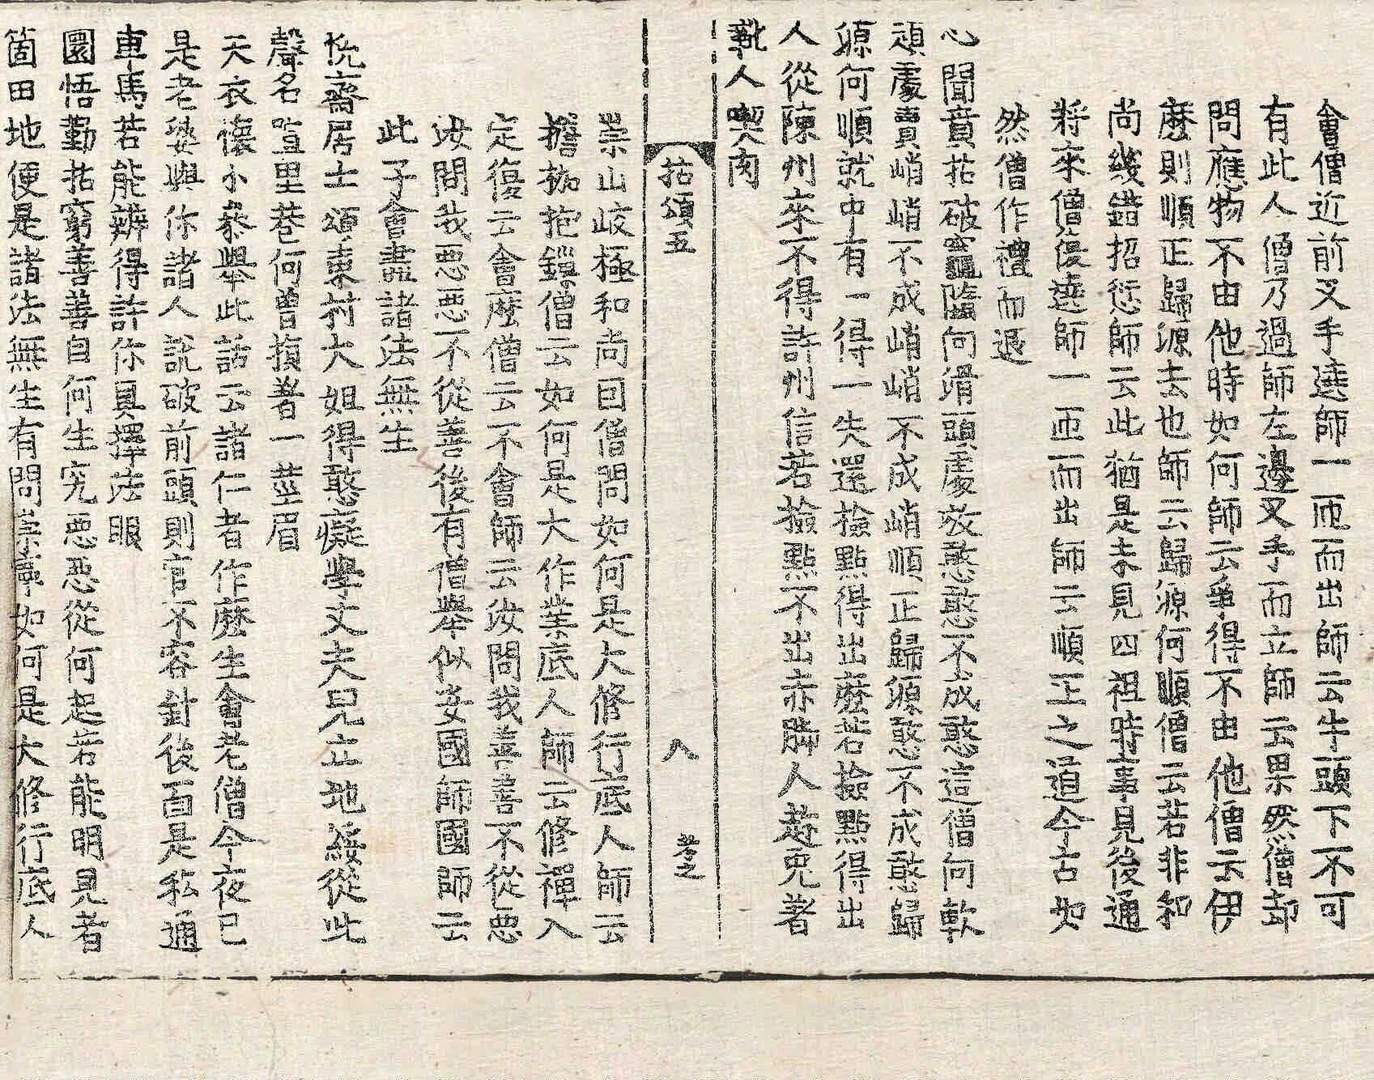 會僧近前叉手遶師一匝而出師云牛頭下不可
有此人僧乃過師左邊叉手而立師云果然僧却
問應物不由他時如何師云爭得不由他僧云伊
麽則順正歸源去也師云歸源何順僧云若非和
尚幾錯招愆師云此猶是未見四祖時事見後通
將來僧便遶師一匝而出師云順正之道今古如
然僧作禮而退
心聞賁拈破竈隨向滑頭處放憨憨不成憨這僧向軟
頑處賣峭峭不成峭峭不成峭順正歸源憨不成憨歸
源何順就中有一得一失還撿點得出麽若撿點得出
人從陳州來不得許州信若撿點不出赤脚人趂兎著
靴人喫肉
拈頌五
八
孝之
崇山峻極和尚因僧問如何是大修行底人師云
擔枷抱鏁僧云如何是大作業底人師云修禪入
定復云會麽僧云不會師云汝問我善善不從惡
汝問我惡惡不從善後有僧舉似安國師國師云
此子會盡諸法無生
悅齋居士頌東村大姐得憨癡學丈夫兒立地綏從此
聲名喧里巷何曾損著一莖眉
天衣懷小叅舉此話云諸仁者作麽生會老僧今夜已
是老婆與你諸人說破前頭則官不容針後面是私通
車馬若能辨得許你具擇法眼
圜悟勤拈窮善善自何生究惡惡從何起若能明見者
箇田地便是諸法無生有問崇寧如何是大修行底人